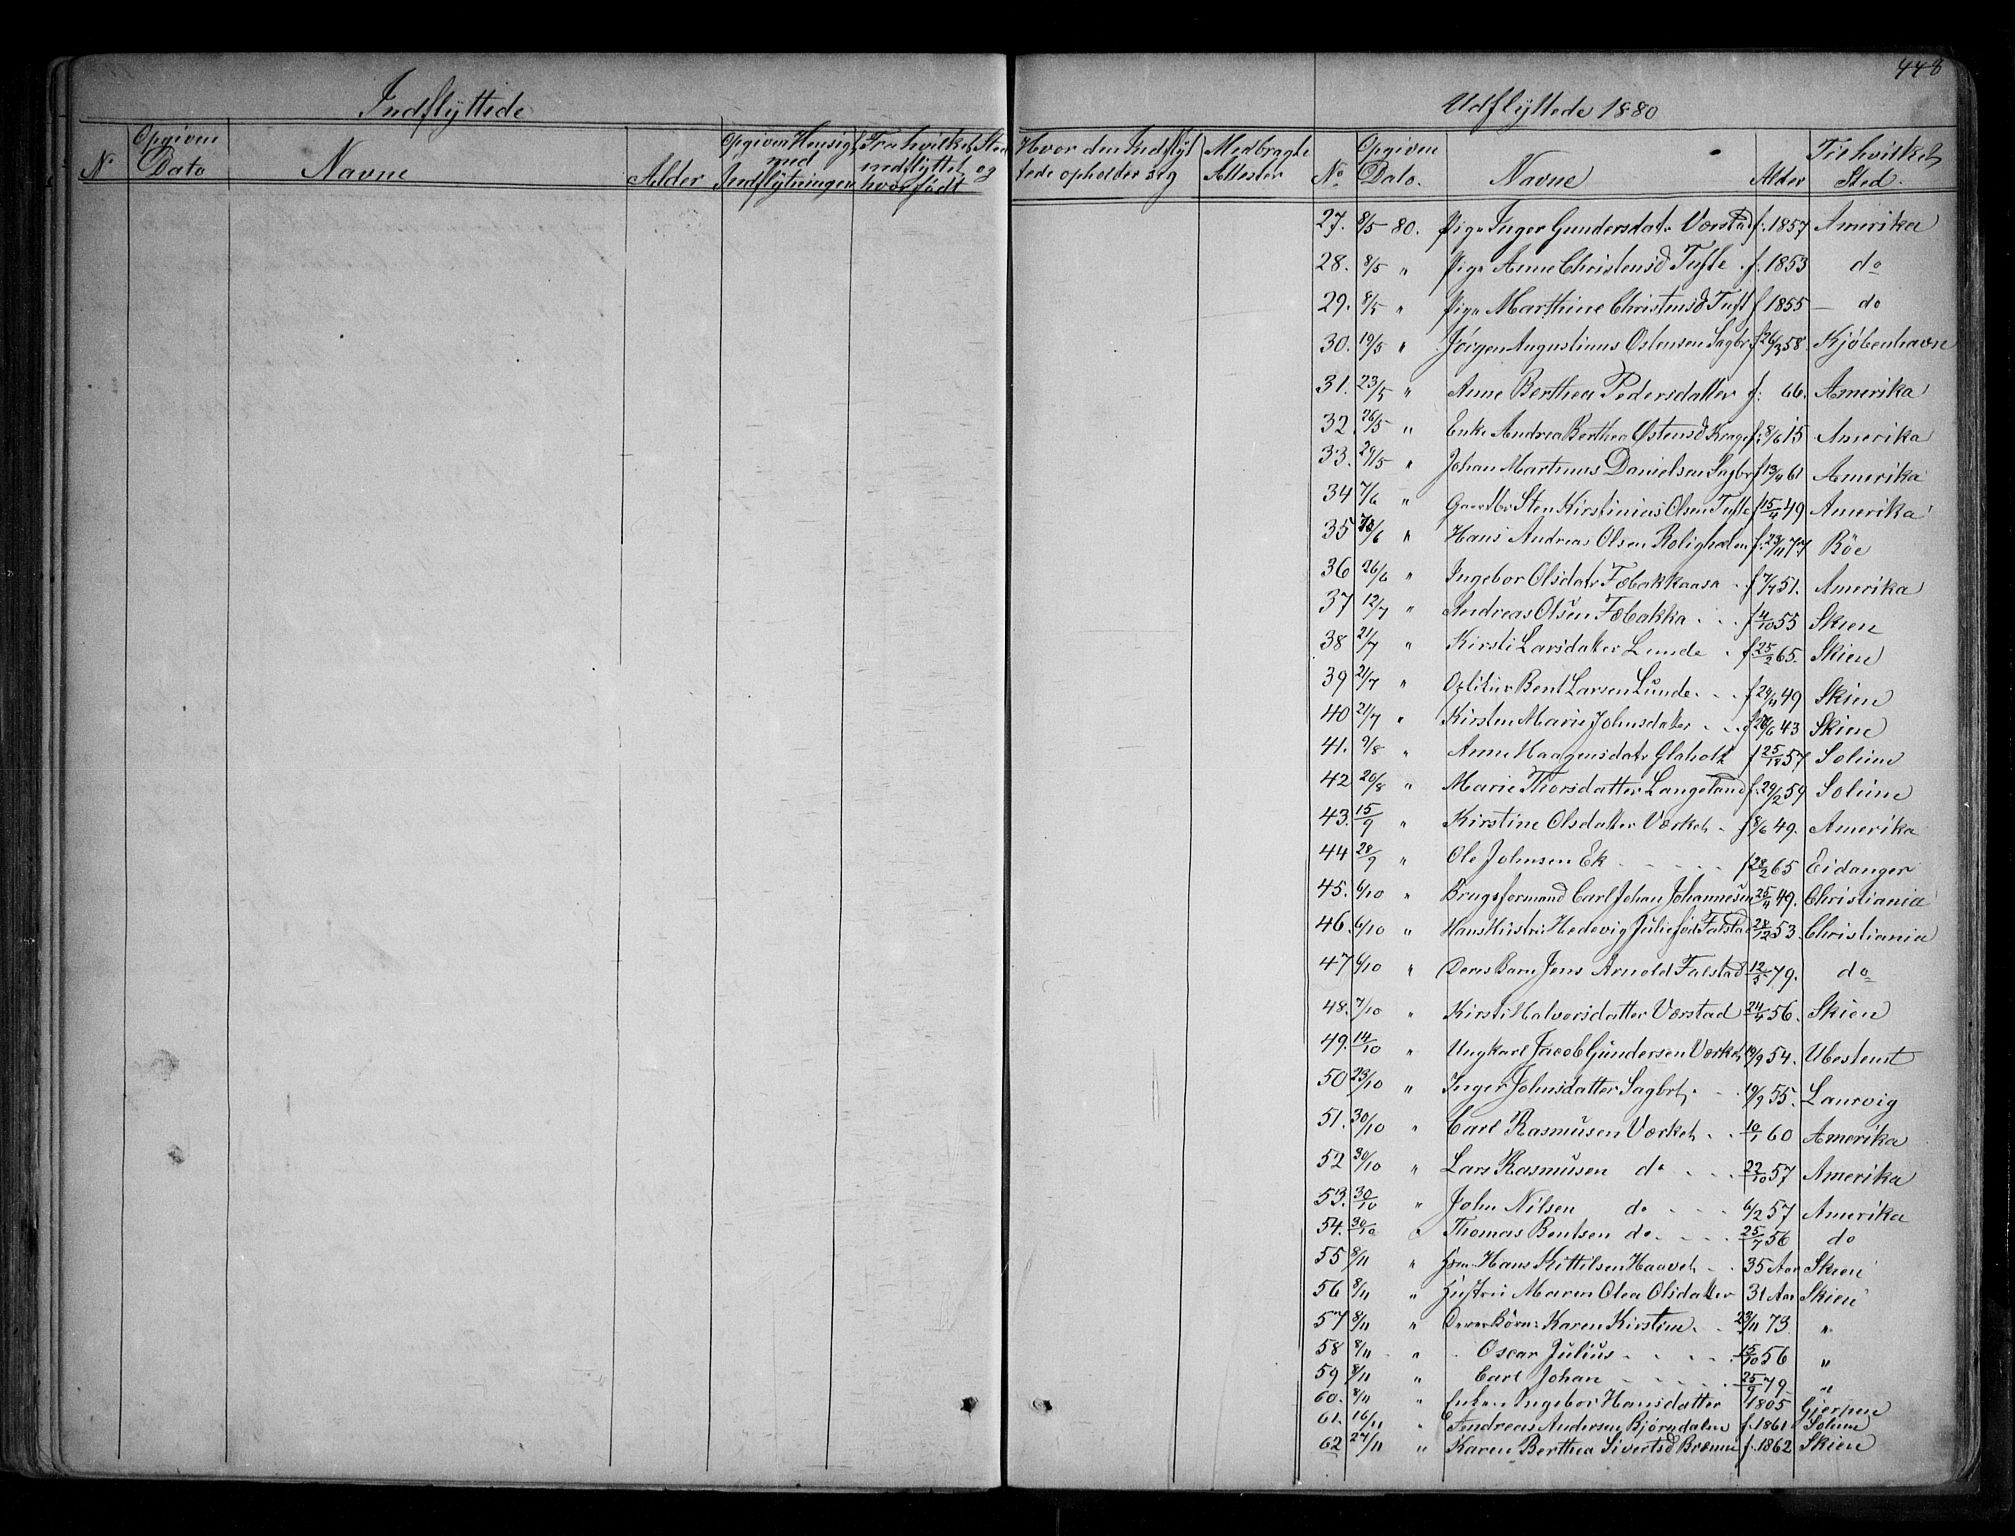 448
Indflyttede
Udflyttede 1880
N Opgiven Dato Navne Alder Opgiven Hensigt med Indflytningen Fra hvilket Sted indflyttet og hvor født Hvor den Indflyttede opholder sig Medbragte Attester No. Opgiven Dato. Navne Alder Til hvilket Sted.
27. 8/5 80. Pige Inger Gundersdatr Værstad f. 1857 Amerika
28. 8/5 " Pige Anne Christensd Tufte f. 1853 do
29. 8/5 " Pige Marthine Christensd Tuft f. 1855 — do
30. 19/5 " Jörgen Augustinus Östensen Sagbr f 26/3 58 Kjøbenhavn
31. 23/5 " Anne Berthea Pedersdatter f: 66. Amerika
32. 26/5 " Enke Andrea Berthea Østensd Krage f: 8/6 15 Amerika
33. 29/5 " Johan Martinus Danielsen Sagbr f 13/11 61 Amerika
34 7/6 " Gaardbr Sten Kirstinius Olsen Tufte f 15/4 49 Amerika
35 /6 " Hans Andreas Olsen Rolighalen f. 23/11 77 Röe
36 26/6 " Ingebor Olsdatr Fæbakkaasa f 7/7 51. Amerika
37 12/7 " Andreas Olsen Fæbakka . . . f 4/10 55 Skien
38 21/7 " Kirsti Larsdatter Lunde . f 25/2 65. Skien
39 21/7 " Bent Larsen Lunde . . . f 29/11 49 Skien
40 21/7 " Kirsten Marie Johnsdater . . . /6 43 Skien
41. 9/8 " Anne Haagensdatr Glaholt f 25/12 57 Solum
42 20/8 " Marie Thorsdatter Langeland f. 29/2 59 Solum
43. 15/9 " Kirstine Olsdatter Værket . f 8/6 49. Amerika
44 28/9 " Ole Johnsen Ek . . . . . f 28/2 65 Eidanger
45. 6/10 " Brugsformand Carl Johan Johannesen 25/11 49. Christiania
46. 6/10 " Hans Hustru Hedevig Julie föd Falstad 28/12 53. Christiania
47 6/10 " Deres Barn Jens Arnold Falstad 12/3 79. do
48. 7/10 " Kirsti Halvorsdatter Værstad 24/4 56. Skien
49. 14/10 " Ungkarl Jacob Gundersen Værket 19/9 54. Ubestemt
50 23/10 " Inger Johnsdatter Sagbrt. . . 19/9 55. Laurvig
51. 30/10 " Carl Rasmusen Værket . . 10/1 60 Amerika
52 30/10 " Lars Rasmusen do . . . 22/10 57 Amerika
53. 30/10 " John Nilsen do . . . . 6/2 57 Amerika
54. 30/10 " Thomas Bentsen do . . . . 25/7 56 do
55 8/11 " Hans Kittilsen Haavet . . 35 Aar Skien
56 8/11 " Hustru Maren Olea Olsdatter 31 Aar Skien
57 8/11 " Deres Börn: Karen Kirstine . . 23/11 73 "
58 8/11 " Oscar Julius . . . . . 15/10 56 "
59 8/11 " Carl Johan . . . . . 25/9 79 "
60. 8/11 " Enken Ingebor Hansdatter 1805 Gjerpen
61. 16/11 " Andreas Andersen Bjørndalen f. 1861 Solum
62 27/11 " Karen Berthea Sivertsd Brænne f. 1862 Skien